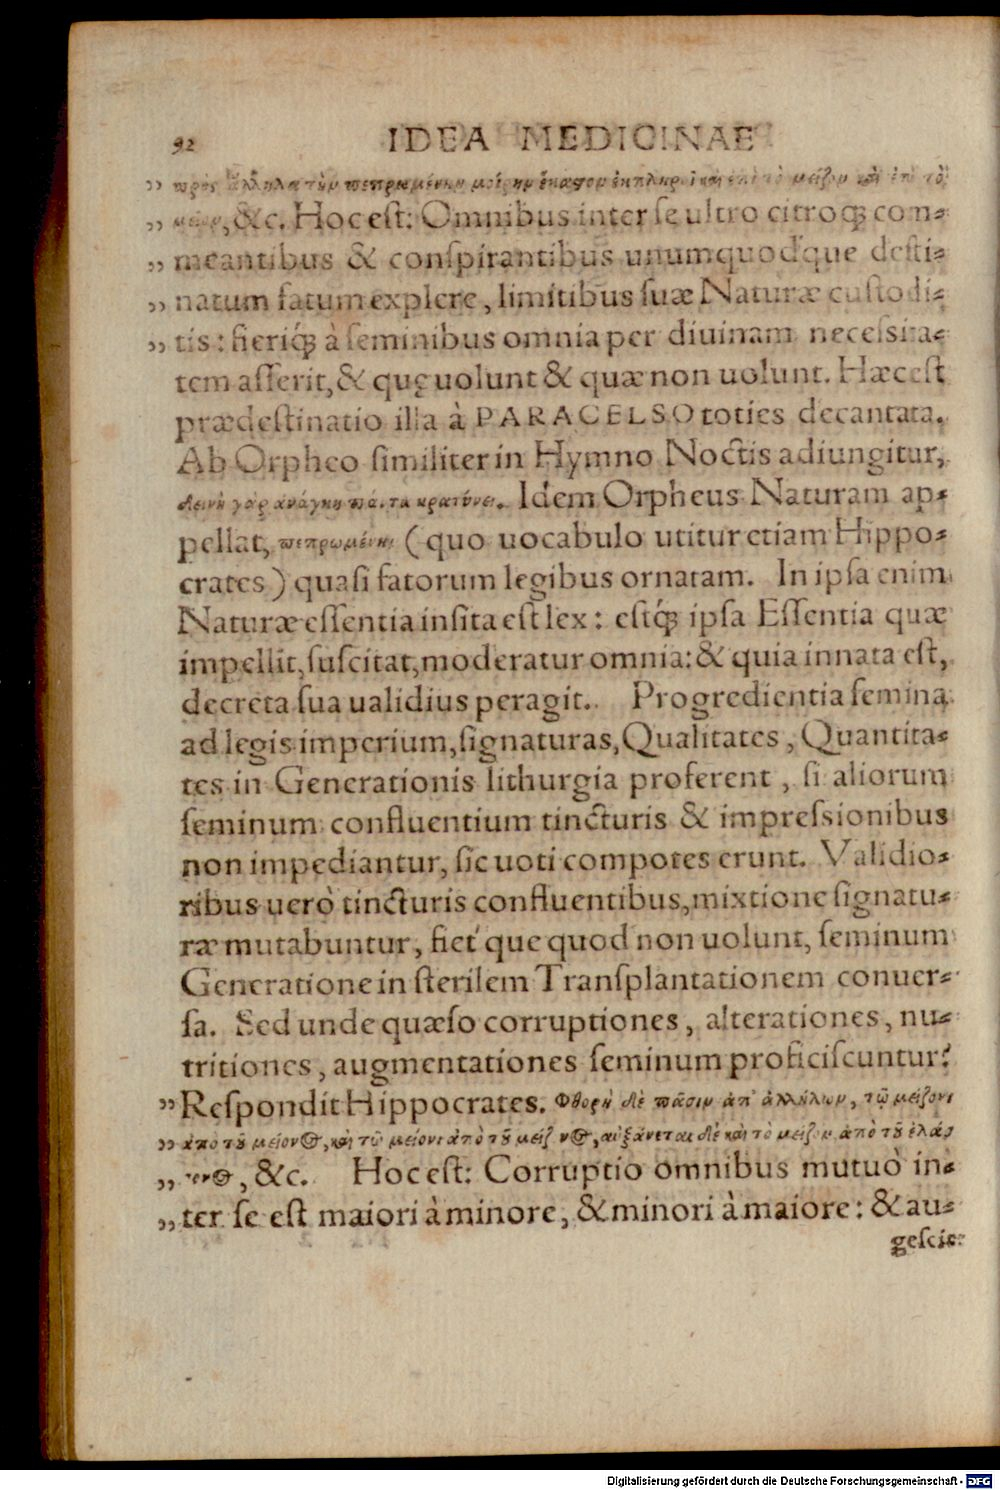 92 IDEA MEDICINAE
„ πρὸς ἄλληλα τὴν πεπρωμένην μοίρην ἕκαστον ἐκπληροῖ καὶ ἐπὶ τὸ μεῖζον καὶ ἐπὶ τὸ
„ μεῖον, &c. Hoc eſt: Omnibus inter ſe ultro citroq; com-
„ meantibus & conſpirantibus unumquodque deſti-
„ natum fatum explere, limitibus ſuæ Naturæ cuſtodi-
„ tis: fieriq́; à ſeminibus omnia per diuinam neceſsita-
tem aſſerit, & quę uolunt & quæ non uolunt. Hæc eſt
prædeſtinatio illa à PARACELSO toties decantata.
Ab Orpheo ſimiliter in Hymno Noctis adiungitur,
δεινὴ γὰρ ἀνάγκη πάντα κρατύνει. Idem Orpheus Naturam ap-
pellat, πεπρωμένην (quo uocabulo utitur etiam Hippo-
crates) quaſi fatorum legibus ornatam. In ipſa enim
Naturæ eſſentia inſita eſt lex: eſtq́; ipſa Eſſentia quæ
impellit, ſuſcitat, moderatur omnia: & quia innata eſt,
decreta ſua ualidius peragit. Progredientia ſemina
ad legis imperium, ſignaturas, Qualitates, Quantita-
tes in Generationis lithurgia proferent, ſi aliorum
ſeminum confluentium tincturis & impreſsionibus
non impediantur, ſic uoti compotes erunt. Validio-
ribus uerò tincturis confluentibus, mixtione ſignatu-
ræ mutabuntur, fiet que quod non uolunt, ſeminum
Generatione in ſterilem Tranſplantationem conuer-
ſa. Sed unde quæſo corruptiones, alterationes, nu-
tritiones, augmentationes ſeminum proficiſcuntur?
„ Reſpondit Hippocrates. Φθορὴ δὲ πᾶσιν ἀπ' ἀλλήλων, τῷ μείζονι
„ ἀπὸ τοῦ μείονος, καὶ τῷ μείονι ἀπὸ τοῦ μείζονος, αὐξάνεται δὲ καὶ τὸ μεῖζον ἀπὸ τοῦ ἐλάσ
„ σονος, &c. Hoc eſt: Corruptio omnibus mutuò in-
„ ter ſe eſt maiori à minore, & minori à maiore: & au-
geſcit
Digitalisierung gefördert durch die Deutsche Forschungsgemeinschaft - DFG